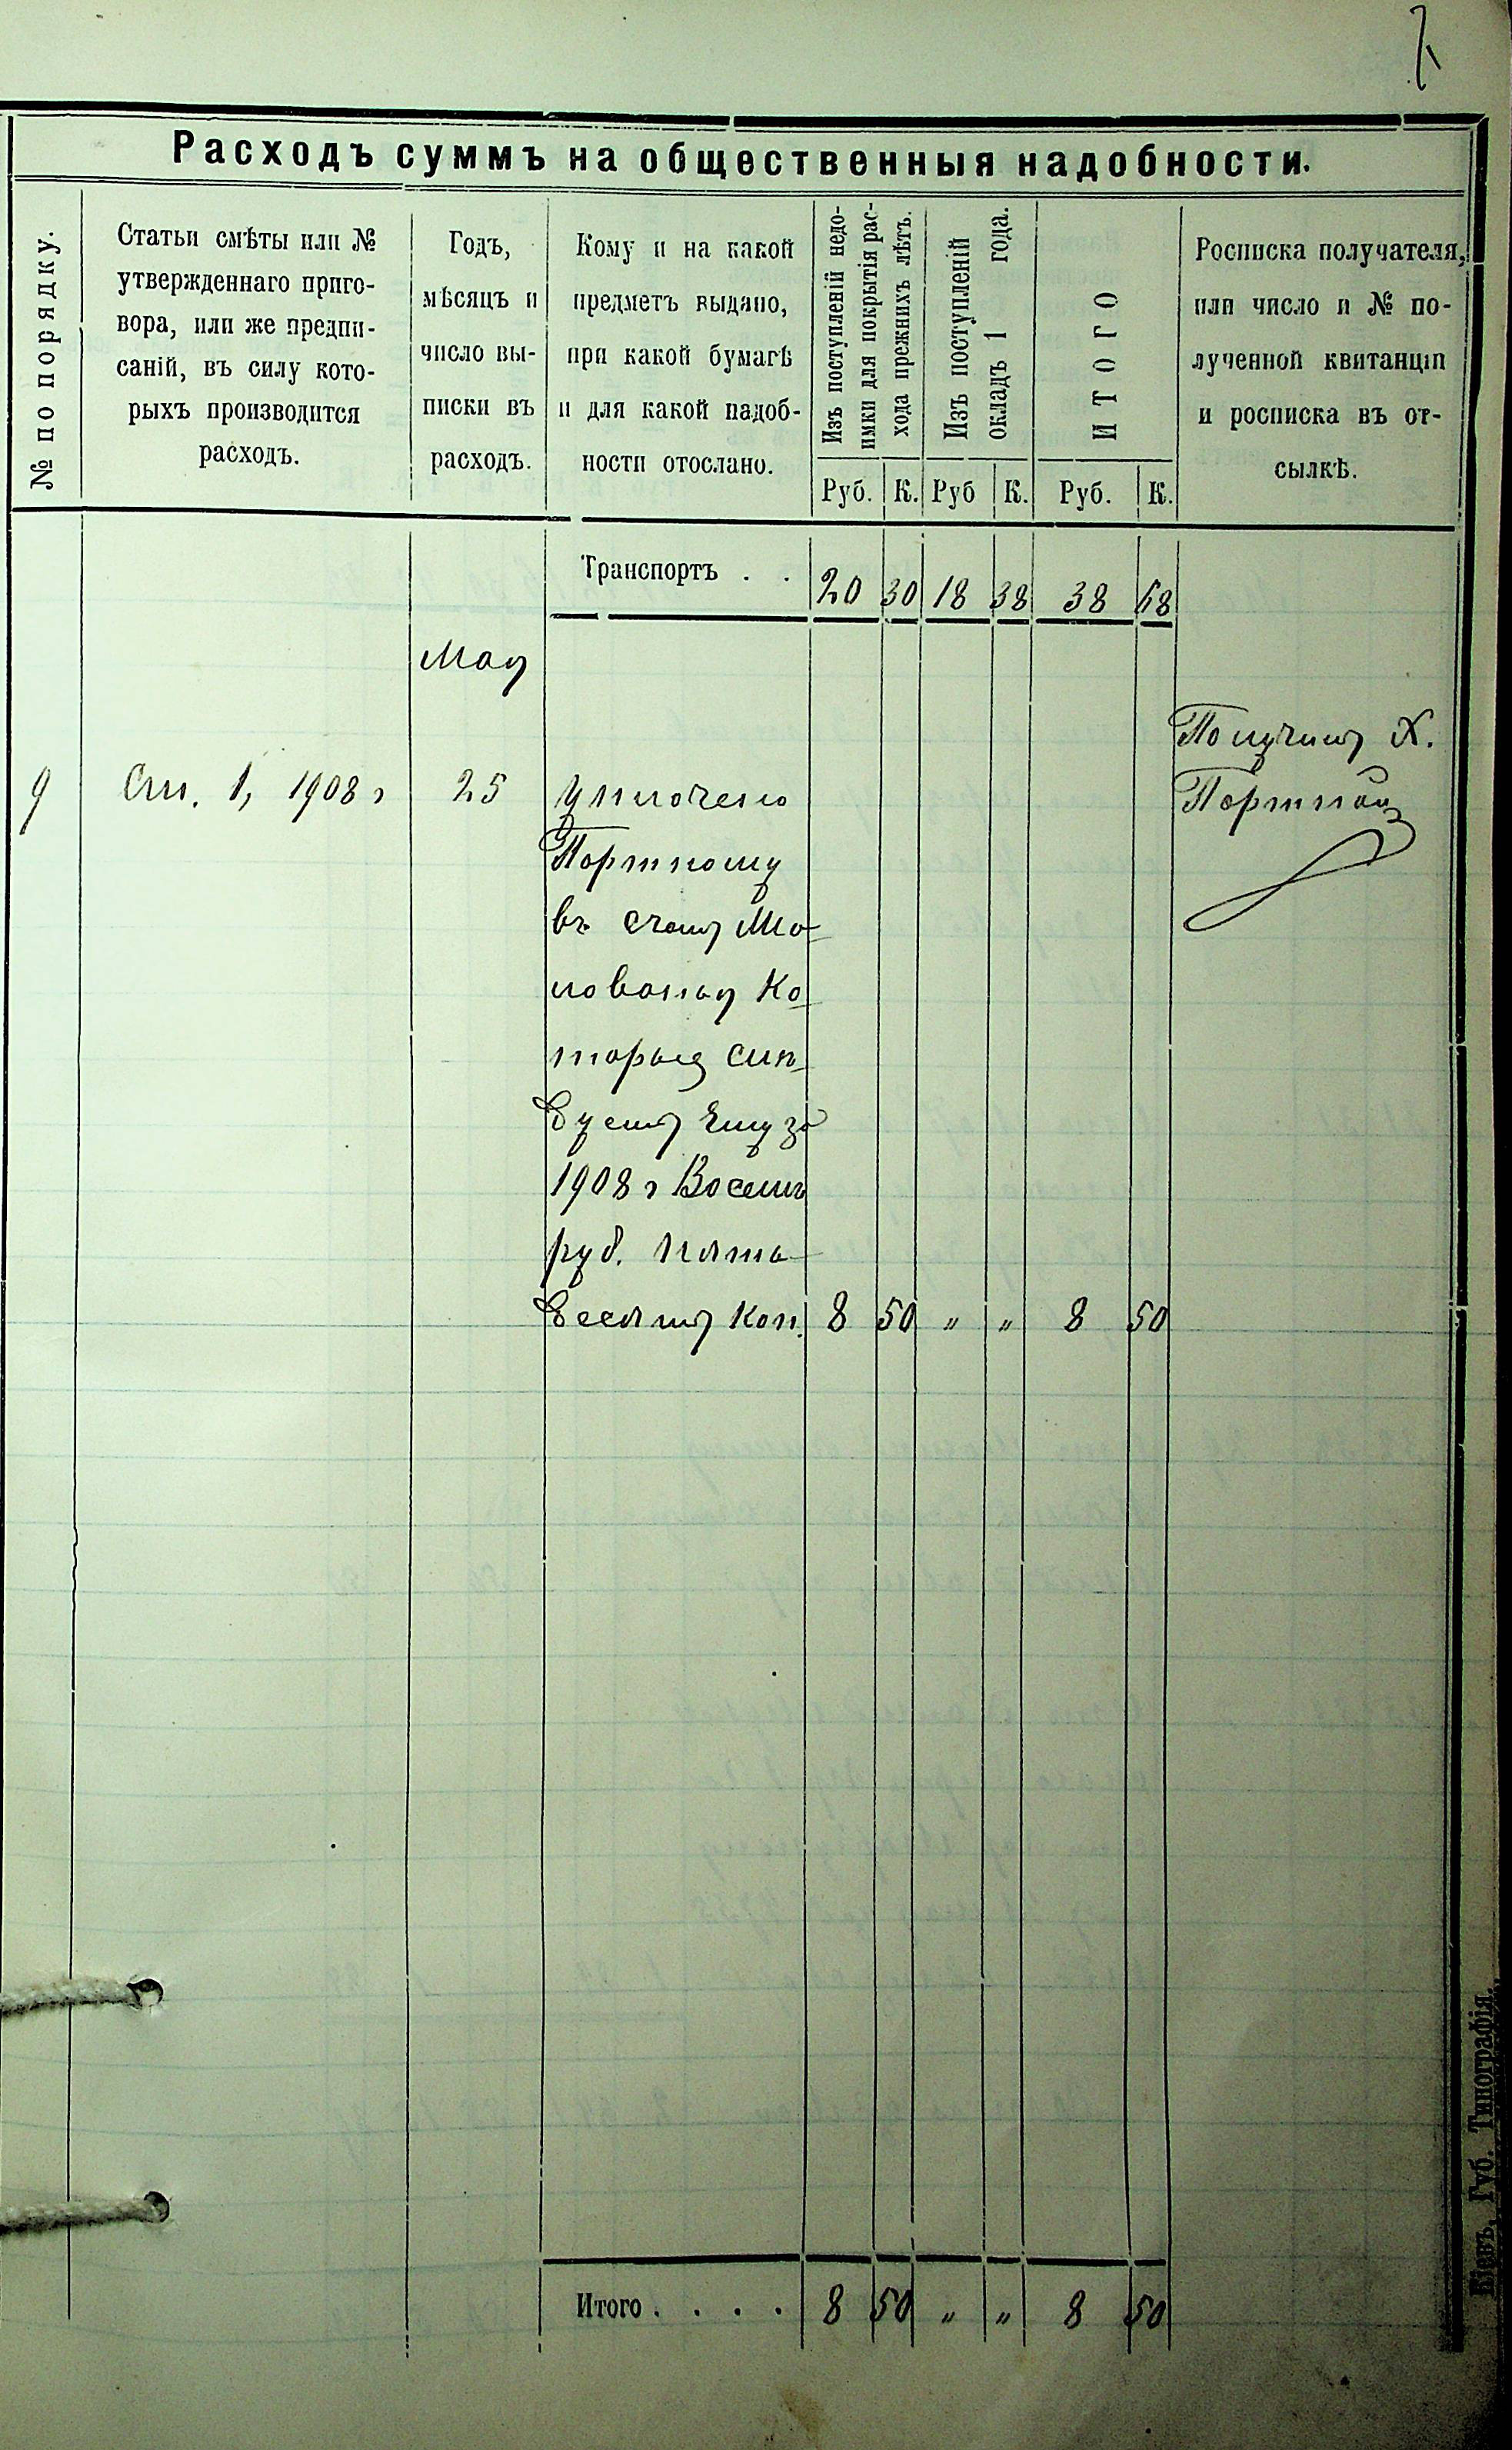 Расходъ суммъ на общественныя надобности.
№ по порядку.
Статьи смѣты или №
утвержденнаго приго-
вора, или же предпи-
саній, въ силу кото-
рыхъ производится
расходъ.
Годъ,
мѣсяцъ и
число вы-
писки въ
расходъ.
Кому и на какой
предметъ выдано,
при какой бумагѣ
и для какой надоб-
ности отослано.
Изъ поступленій недо-
имки для покрытія рас-
хода прежнихъ лѣтъ.
Изъ поступленій
окладъ 1 года.
ИТОГО
Росписка получателя,
или число и № по-
лученной квитанціи
и росписка въ от-
сылкѣ.
Руб. К. Руб К. Руб. К.
Транспортъ . . 20 30 18 38 38 68
Мая
Получилъ Х.
Портной
9 Ст. 1, 1908 г 25 Уплочено
Портному
въ счетъ
Жалованья Ко
торые слѣ
дуетъ Ему за
1908 г Восемь
руб. пять
десятъ коп. 8 50 " " 8 50
Итого . . . . 8 50 " " 8 50
Кіевъ, Губ. Типографія.